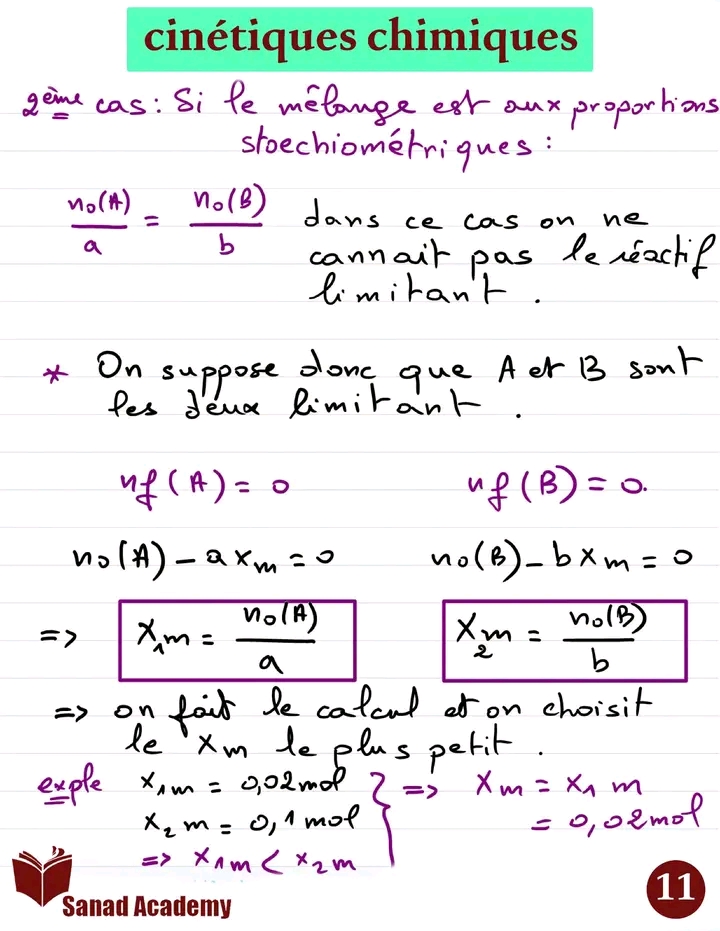 cinétiques chimiques
2ème cas : Si le mélange est aux proportions
stoechiométriques :
n₀(A)/a = n₀(B)/b
dans ce cas on ne
cannait pas le réactif
limitant .
* On suppose donc que A et B sont
les deux limitant .
nf(A) = 0 nf(B) = 0.
n₀(A) - a xm = 0 n₀(B) - b xm = 0
=> X₁m = n₀(A)/a X₂m = n₀(B)/b
=> on fait le calcul et on choisit
le xm le plus petit .
exple x₁m = 0,02mol } => Xm = x₁m
x₂m = 0,1mol = 0,02mol
=> x₁m < x₂m
Sanad Academy
11